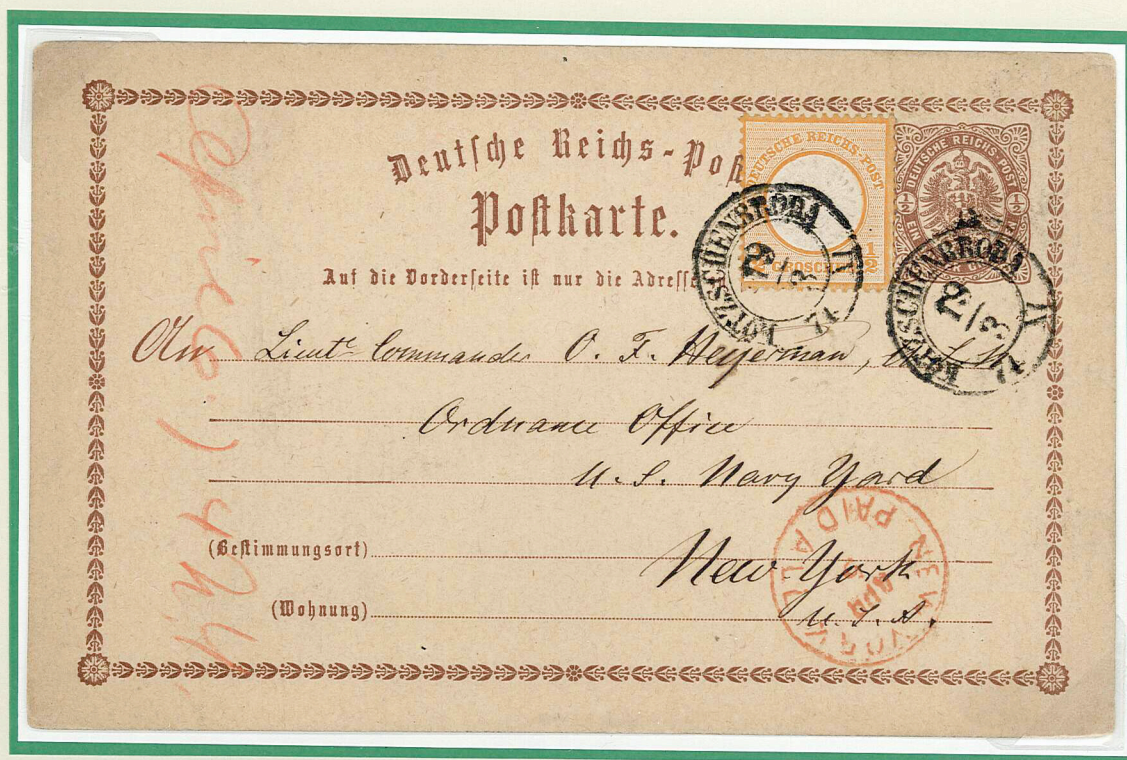 Deutsche Reichs-Post
Postkarte.
Auf die Vorderseite ist nur die Adresse
DEUTSCHE REICHS-POST
1/2 GROSCHEN 1/2
DEUTSCHE REICHS-POST
1/2 1/2
KÖTZSCHENBRODA
IV
29/3
74
KÖTZSCHENBRODA
IV
29/3
74
An Lieut. Commander O. F. Heyerman, U.S.N.
Ordnance Office
U.S. Navy Yard
(Bestimmungsort)
New York
(Wohnung)
U.S.A.
NEW YORK
APR
PAID ALL